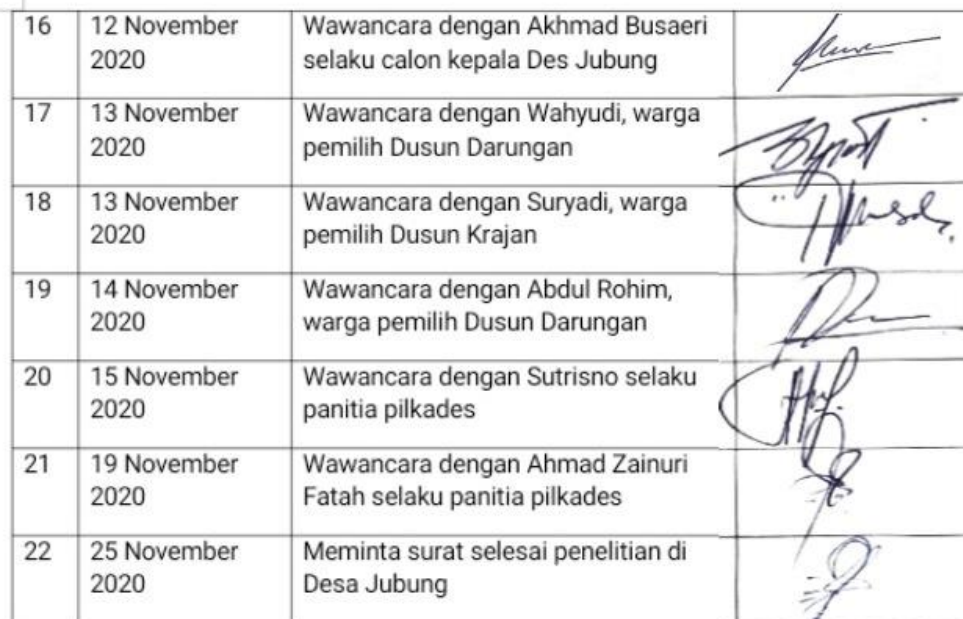 16 12 November Wawancara dengan Akhmad Busaeri
2020 selaku calon kepala Des Jubung
17 13 November Wawancara dengan Wahyudi, warga
2020 pemilih Dusun Darungan
18 13 November Wawancara dengan Suryadi, warga
2020 pemilih Dusun Krajan
19 14 November Wawancara dengan Abdul Rohim,
2020 warga pemilih Dusun Darungan
20 15 November Wawancara dengan Sutrisno selaku
2020 panitia pilkades
21 19 November Wawancara dengan Ahmad Zainuri
2020 Fatah selaku panitia pilkades
22 25 November Meminta surat selesai penelitian di
2020 Desa Jubung